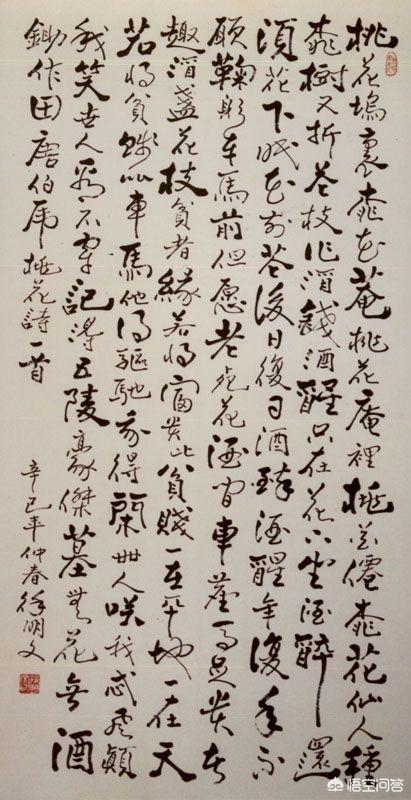 桃花塢裏桃花菴桃花庵裡桃花僊桃花仙人種
桃樹又折花枝作酒錢酒醒只在花下坐酒醉還
須花下眠花前花後日復日酒醉酒醒年復年不
願鞠躬車馬前但愿老死花酒間車塵馬足貴者
趣酒盞花枝貧者緣若將富貴比貧賤一在平地一在天
若將貧賤比車馬他得驅馳我得閑世人咲我忒風顛
我笑世人看不穿記得五陵豪傑墓無花無酒
鋤作田唐伯虎桃花詩一首
辛巳年仲春徐明文
悟空问答